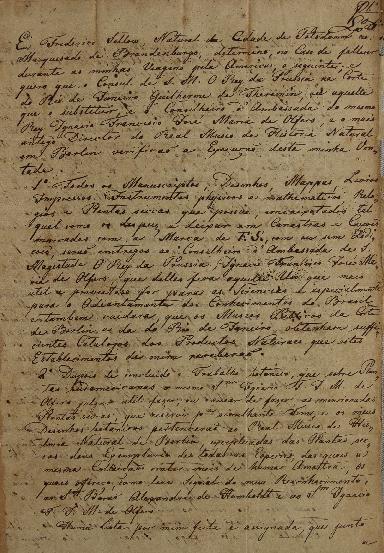 Eu Frederico Sellow Natural da Cidade de Potsdamm no
Marquesado de Brandenburgo, determino, no Caso de fallecer
durante as minhas Viagens pela America, o seguinte, e
quero que o Consul de S. M. O Rey da Prussia na Corte
do Rio de Janeiro Guilherme de Theremin, ou aquelle
que o substituir e o Conselheiro d'Ambassada do mesmo
Rey Ignacio Francisco José Maria de Olfers, e o mais
antigo Director do Real Museo de Historia Natural
em Berlin verificão a Execução desta minha Von
tade.
1º Todos os Manuscriptos, Desenhos, Mappas, Livros
Impressos, Instrumentos physicos ou mathematicos Relo
gios e Plantas seccas que possúo, encaixotados tal
qual como os despus, e deixar em Canastras e
com a Marca de F. S. com ou sem
serão entregues ao Conselheiro d'Ambassada de S.
Magestade O Rey da Prussia, Ignacio Francisco José Ma
ria de Olfers, que delles fará aquelle Uso que mais
util e proveitoso for para as Sciencias e especialmente
para o Adeantamento dos Conhecimentos do Brasil
e tambem cuidará que os Museos da Corte
de Berlin e da do Rio de Janeiro obtenham suffi
cientes Catalogos dos Productos Naturaes que estes
Establecimentos de mim receberão.
2º Depois de concluido o Trabalho botanico, que sobre Plan
tas o mesmo Sr. Ignacio F. J. M. de
Olfers julgar util fazer, ou mandar de fazer, as mencionadas
Plantas seccas, que reservei pª semelhante fim, e os meus
Desenhos botanicos pertencerão ao Real Museo de His
toria Natural de Berlin, exceptuadas das Plantas sec
cas dous Exemplares de cada huma Especie, das quaes a
mesma Collecção contar mais de humas Amostras, os
quaes offereço como hum Signal do meu Reconhecimento,
ao Sr. Barão Alexandre de Humboldt e ao Sr. Ignacio
F. J. M. de Olfers.
Huma Lista por mim feita e assignada, que junto